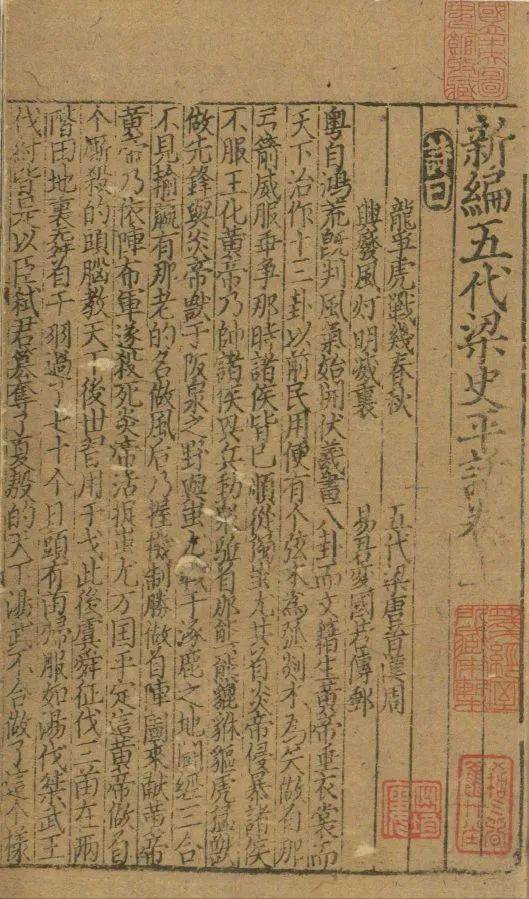 新編五代梁史平話卷上
詩曰
龍爭虎戰幾春秋　五代梁唐晉漢周
興廢風灯明滅裏　易君變國若傳郵
粵自鴻荒既判風氣始開伏羲畫八卦而文籍生黄帝垂衣裳而
天下治作十三卦以前民用便有个弦木為弧剡木為矢做着那
弓箭威服乖爭那時諸侯皆已順從獨蚩尤共着炎帝侵暴諸侯
不服王化黄帝乃帥諸侯興兵動衆驅着那熊羆貔貅貙虎猛獸
做先鋒與炎帝戰于阪泉之野與蚩尤戰于涿鹿之地闘經三合
不見輸贏有那老的名做風后乃握機制勝做着陣圖來献黄帝
黄帝乃依陣布軍遂殺死炎帝活捉蚩尤万国平定這黄帝做着
个厮殺的頭腦教天下後世習用干戈此後虞舜征伐三苗在兩
階田地裏舞着干羽過了七十个日頭有苗歸服如湯伐桀武王
伐紂皆是以臣弑君篡奪了夏殷的天下湯武不合做了這个樣